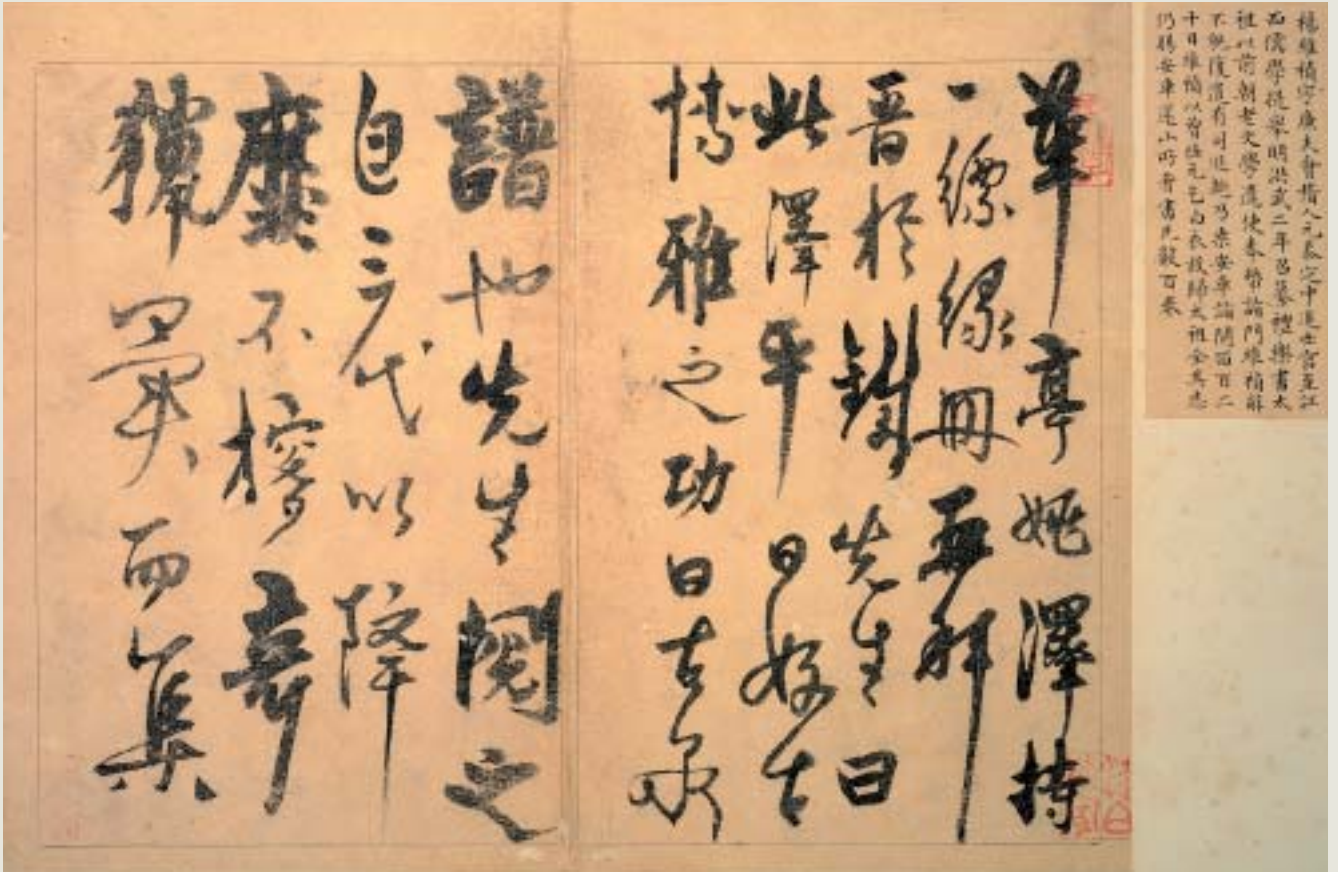 楊維楨字廉夫會稽人元泰定中進士官至江
西儒學提舉明洪武二年召纂禮樂書太
祖以前朝老文學遣使奉幣詣門維楨辭
不就復遣有司趣乃乘安車詣闕留百二
十日維楨以曾任元乞白衣放歸太祖全其志
仍賜安車還山所著書凡數百卷
華亭姚澤持
一縹緣冊再拜
晋於鐵先生曰
此澤平日好古
博雅之功曰古泉
譜也先生閱之
自三代以降
靡不搜奇
獵異而集